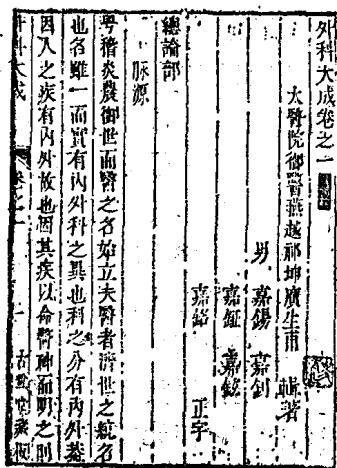 外科大成卷之一
太醫院御醫燕越祁坤廣生甫 輯著
男 嘉錫 嘉釗
嘉鉦 嘉鉉
嘉銘 正字
總論部
脉源
粵稽炎農御世而醫之名始立夫醫者濟世之統名
也名雖一而實有內外科之異也科之分有內外葢
因人之疾有內外故也因其疾以命醫神而明之則
外科大成 卷之一 一